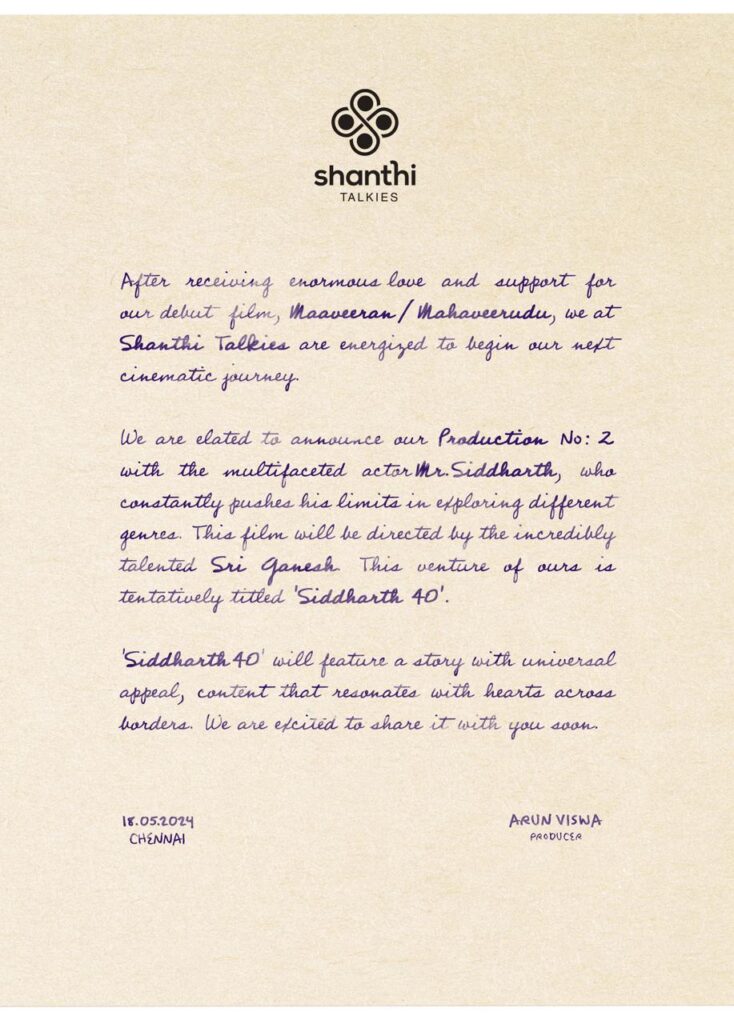 shanthi
TALKIES
After receiving enormous love and support for
our debut film, Maaveeran / Mahaveerudu, we at
Shanthi Talkies are energized to begin our next
cinematic journey.
We are elated to announce our Production No: 2
with the multifaceted actor Mr. Siddharth, who
constantly pushes his limits in exploring different
genres. This film will be directed by the incredibly
talented Sri Ganesh. This venture of ours is
tentatively titled 'Siddharth 40'.
'Siddharth 40' will feature a story with universal
appeal, content that resonates with hearts across
borders. We are excited to share it with you soon.
18.05.2024
CHENNAI
ARUN VISWA
PRODUCER